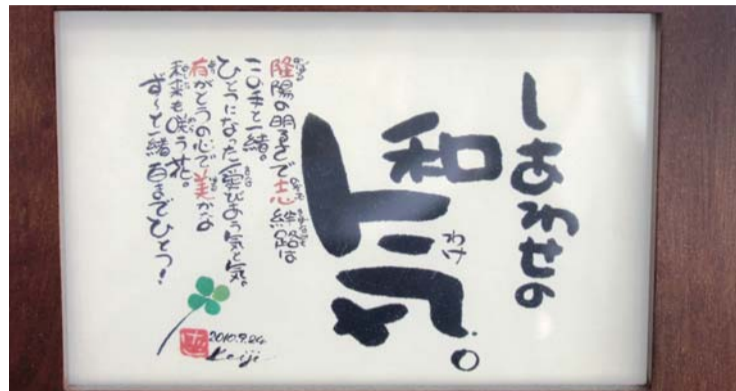 しあわせの
和気。
わけ
隆陽の明るさで志
一緒。
ひとつになった気と気。
有がとうの心で美がな
未来も咲う花。
ず〜と一緒 百までひとつ!
2010.9.24
Keiji